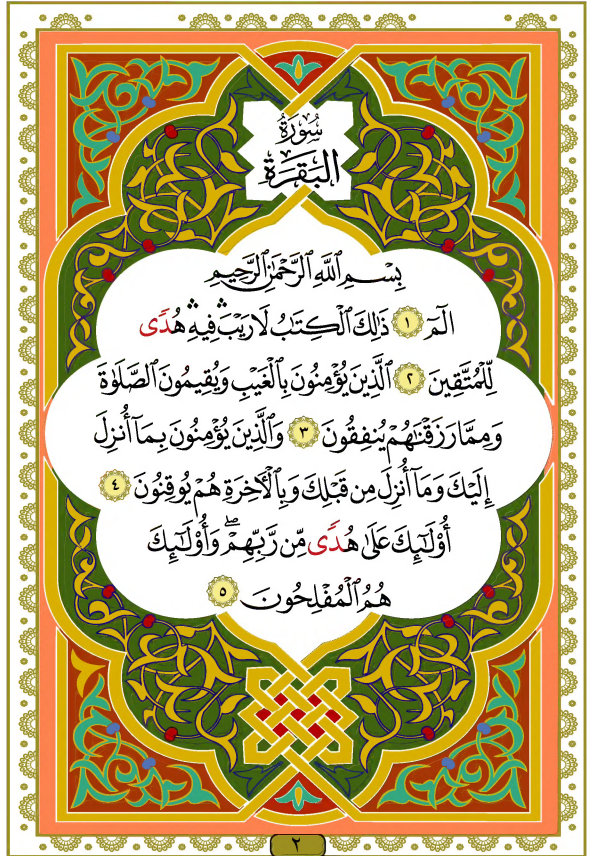 سُورَةُ
البَقَرَةِ
بِسۡمِ ٱللَّهِ ٱلرَّحۡمَٰنِ ٱلرَّحِيمِ
الٓمٓ ١ ذَٰلِكَ ٱلۡكِتَٰبُ لَا رَيۡبَۛ فِيهِۛ هُدٗى
لِّلۡمُتَّقِينَ ٢ ٱلَّذِينَ يُؤۡمِنُونَ بِٱلۡغَيۡبِ وَيُقِيمُونَ ٱلصَّلَوٰةَ
وَمِمَّا رَزَقۡنَٰهُمۡ يُنفِقُونَ ٣ وَٱلَّذِينَ يُؤۡمِنُونَ بِمَآ أُنزِلَ
إِلَيۡكَ وَمَآ أُنزِلَ مِن قَبۡلِكَ وَبِٱلۡأٓخِرَةِ هُمۡ يُوقِنُونَ ٤
أُوْلَٰٓئِكَ عَلَىٰ هُدٗى مِّن رَّبِّهِمۡۖ وَأُوْلَٰٓئِكَ
هُمُ ٱلۡمُفۡلِحُونَ ٥
٢